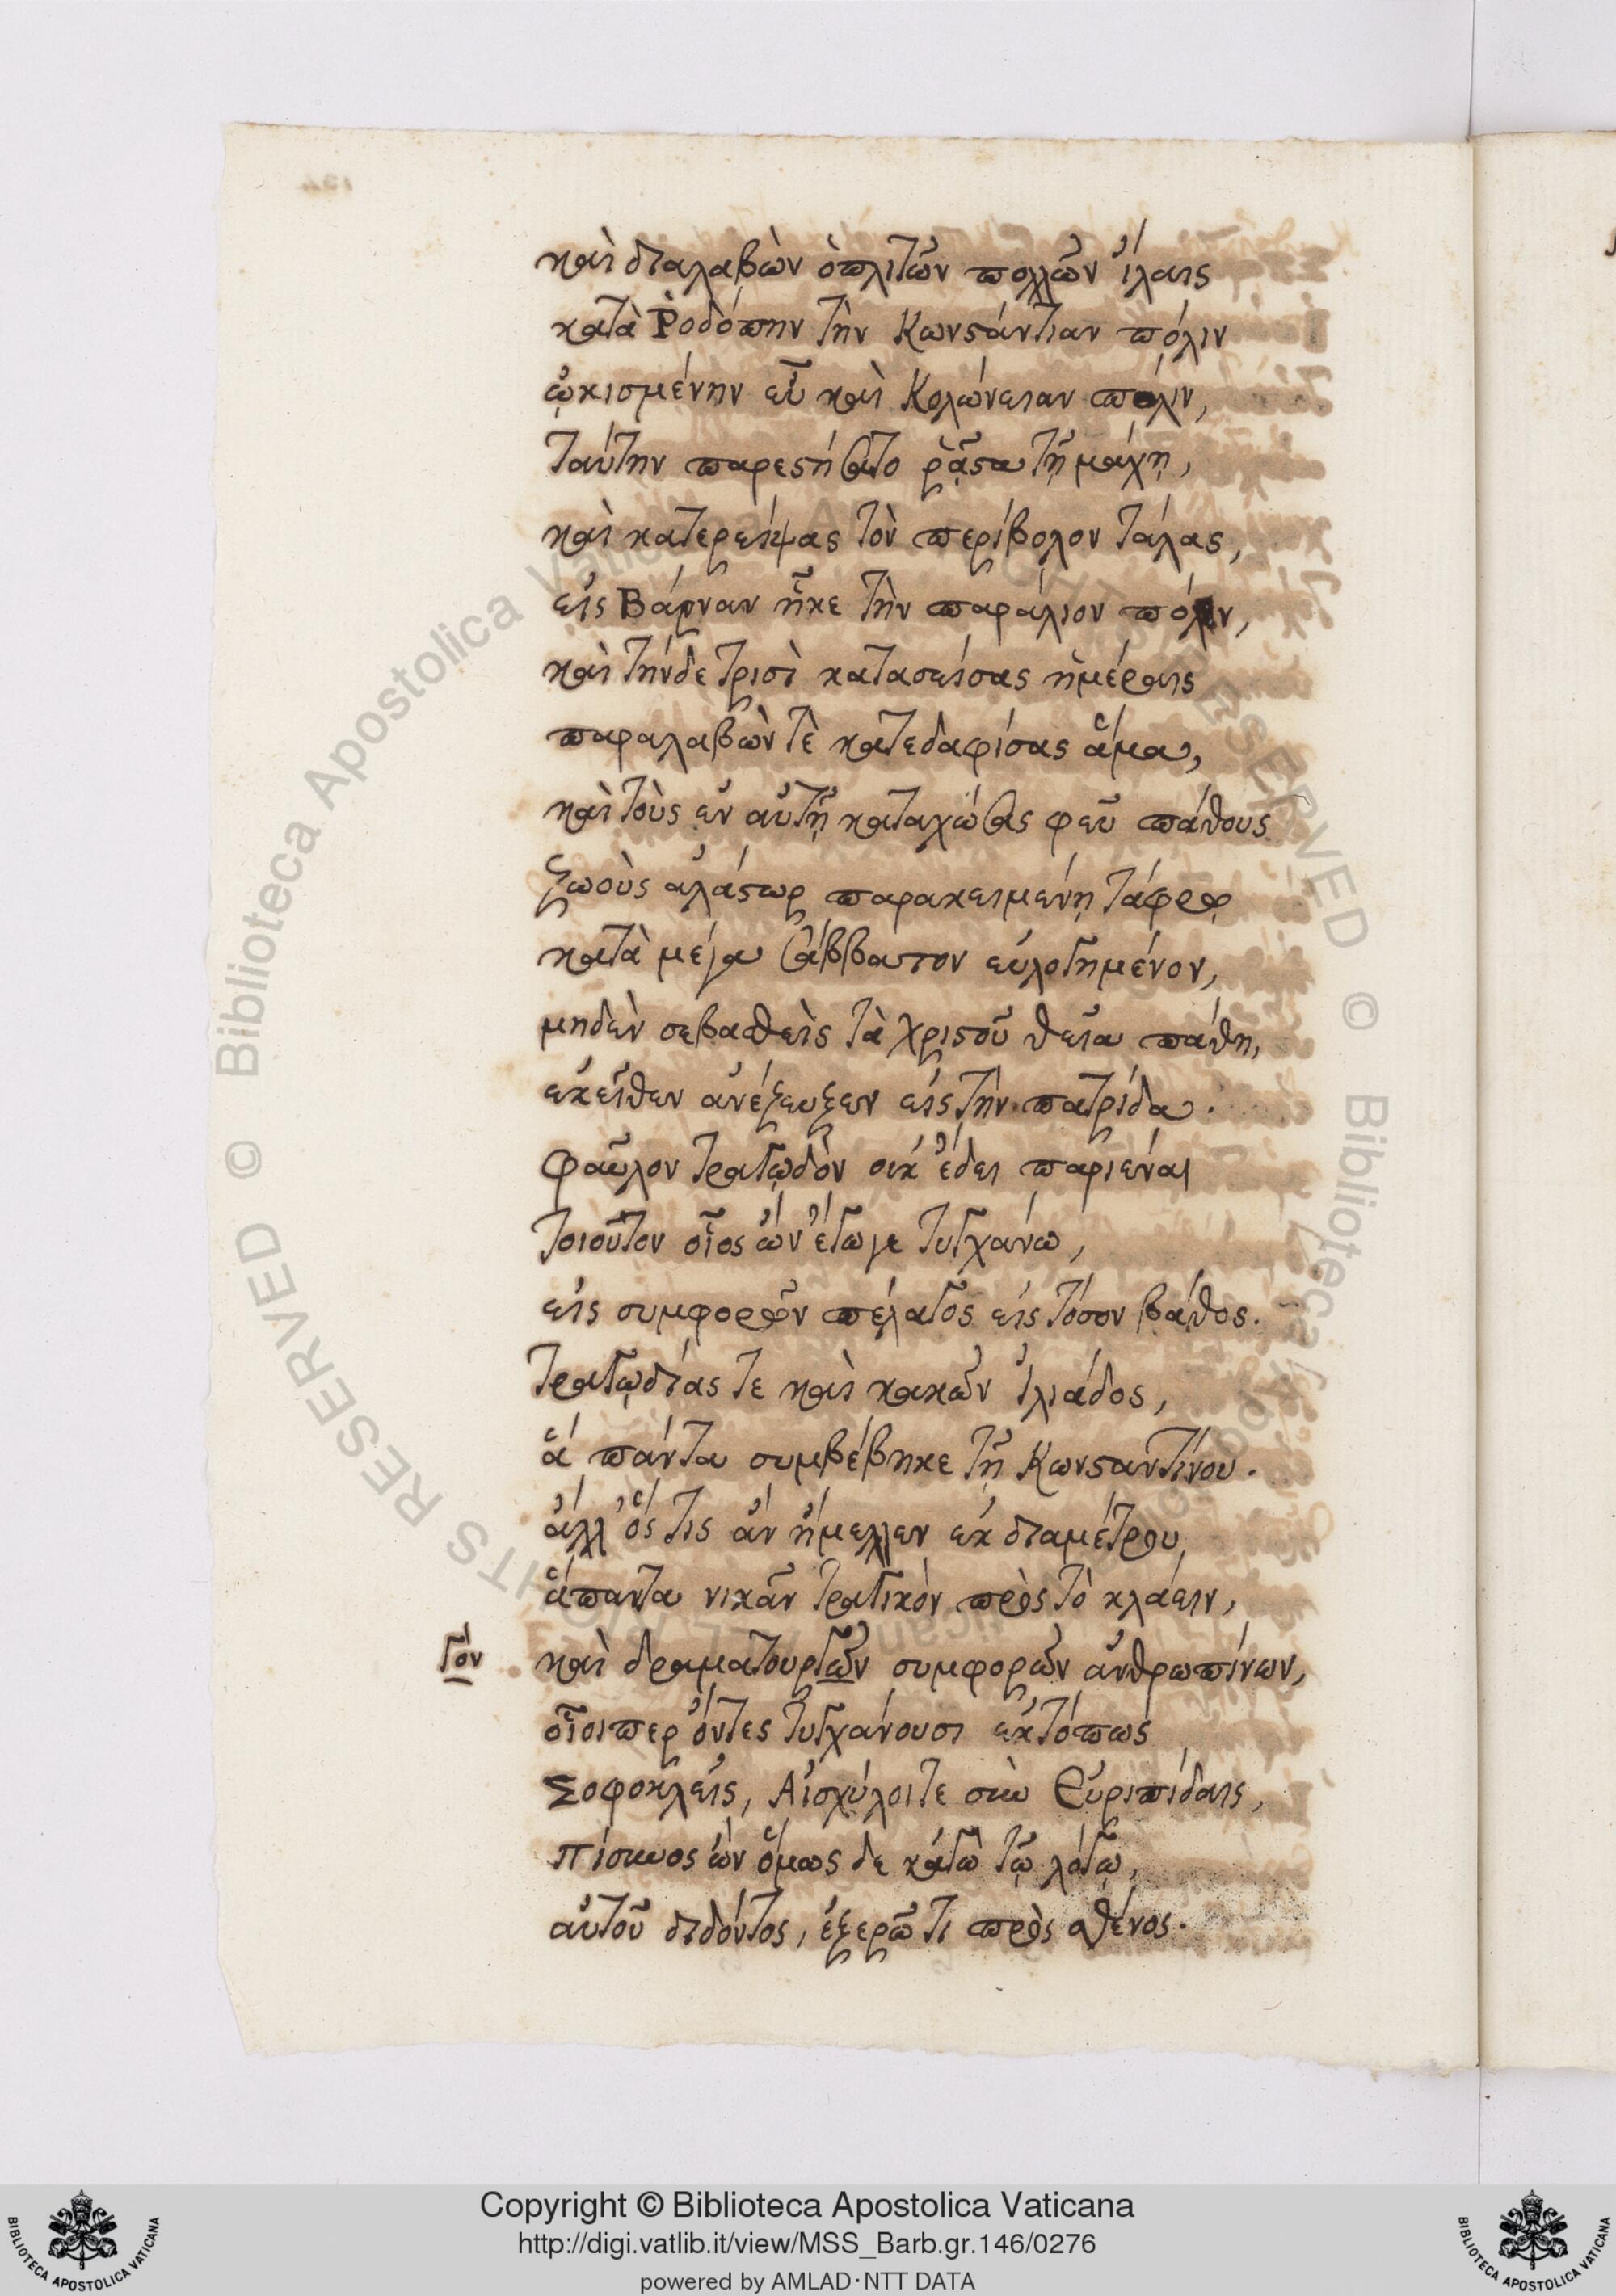 καὶ διαλαβὼν ὁπλιτῶν πολλῶν ἴλαις
κατὰ Ῥοδόπην τὴν Κωνστάντιαν πόλιν
ᾠκισμένην εὖ καὶ Κολώνειαν πόλιν,
ταύτην παρεστήσατο ῥᾷστα τῇ μάχῃ,
καὶ κατερείψας τὸν περίβολον τάλας,
εἰς Βάρναν ἧκε τὴν παράλιον πόλιν,
καὶ τήνδε τρισὶ κατασείσας ἡμέραις
παραλαβὼν τὲ κατεδαφίσας ἅμα,
καὶ τοὺς ἐν αὐτῇ καταχώσας φεῦ πάθους
ζωοὺς ἀλάστωρ παρακειμένῃ τάφρῳ
κατὰ μέγα σάββατον εὐλογημένον,
μηδὲν σεβασθεὶς τὰ χριστοῦ θεῖα πάθη,
ἐκεῖθεν ἀνέζευξεν εἰς τὴν πατρίδα.
Φαῦλον τραγῳδὸν οὐκ ἔδει παριέναι
τοιοῦτον οἷος ὢν ἔγωγε τυγχάνω,
εἰς συμφορῶν πέλαγος εἰς τόσον βάθος.
τραγῳδίας τε καὶ κακῶν ἰλιάδος,
ἃ πάντα συμβέβηκε τῇ Κωνσταντίνου.
ἀλλ' ὅς τις ἂν ἤμελλεν ἐκ διαμέτρου,
ἅπαντα νικᾶν τραγικὸν πρὸς τὸ κλάειν,
γὸν
καὶ δραματουργῶν συμφορῶν ἀνθρωπίνων,
οἷοιπερ ὄντες τυγχάνουσι ἐκτόπως
Σοφοκλεῖς, Αἰσχύλοιτε σὺν Εὐριπίδαις,
πίσυνος ὢν ὅμως δὲ κἀγὼ τῷ λόγῳ,
αὐτοῦ διδόντος, ἐξερῶ τι πρὸς σθένος.
Copyright © Biblioteca Apostolica Vaticana
http://digi.vatlib.it/view/MSS_Barb.gr.146/0276
powered by AMLAD·NTT DATA